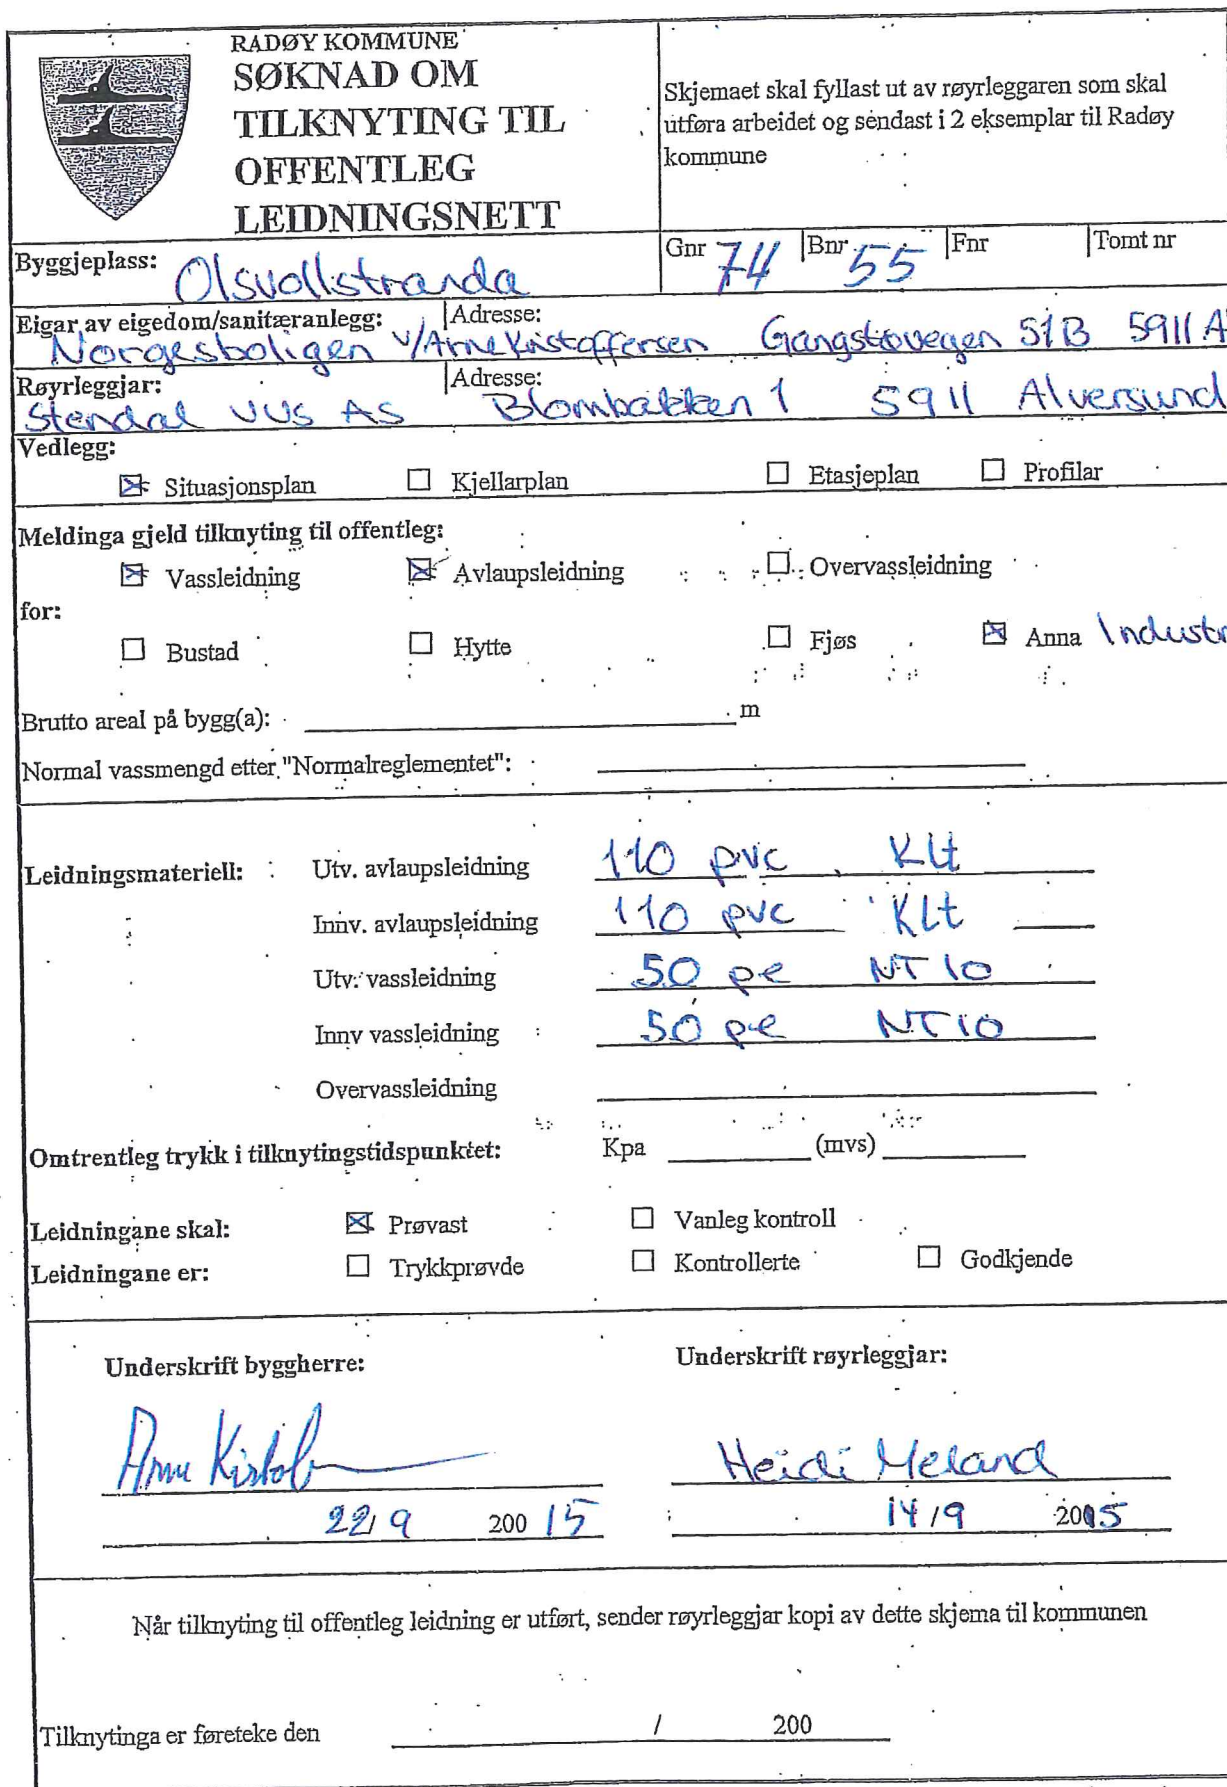 RADØY KOMMUNE
SØKNAD OM
TILKNYTING TIL
OFFENTLEG
LEIDNINGSNETT
Skjemaet skal fyllast ut av røyrleggaren som skal
utføra arbeidet og sendast i 2 eksemplar til Radøy
kommune
Byggjeplass: Olsvollstranda
Gnr 74 Bnr 55 Fnr Tomt nr
Eigar av eigedom/sanitæranlegg: Adresse:
Norgesboligen v/Arne Kristoffersen Gangstøvegen 51B 5911 A
Røyrleggjar: Adresse:
Stendal VVS AS Blombakken 1 5911 Alversund
Vedlegg:
Situasjonsplan Kjellarplan Etasjeplan Profilar
Meldinga gjeld tilknyting til offentleg:
Vassleidning Avlaupsleidning Overvassleidning
for:
Bustad Hytte Fjøs Anna Industr
Brutto areal på bygg(a): m
Normal vassmengd etter "Normalreglementet":
Leidningsmateriell: Utv. avlaupsleidning 110 pvc Klt
Innv. avlaupsleidning 110 pvc Klt
Utv. vassleidning 50 pe NT10
Innv vassleidning 50 pe NT10
Overvassleidning
Omtrentleg trykk i tilknytingstidspunktet: Kpa (mvs)
Leidningane skal: Prøvast Vanleg kontroll
Leidningane er: Trykkprøvde Kontrollerte Godkjende
Underskrift byggherre: Underskrift røyrleggjar:
Arne Heidi Meland
22/9 200 15 14/9 2015
Når tilknyting til offentleg leidning er utført, sender røyrleggjar kopi av dette skjema til kommunen
Tilknytinga er føreteke den / 200